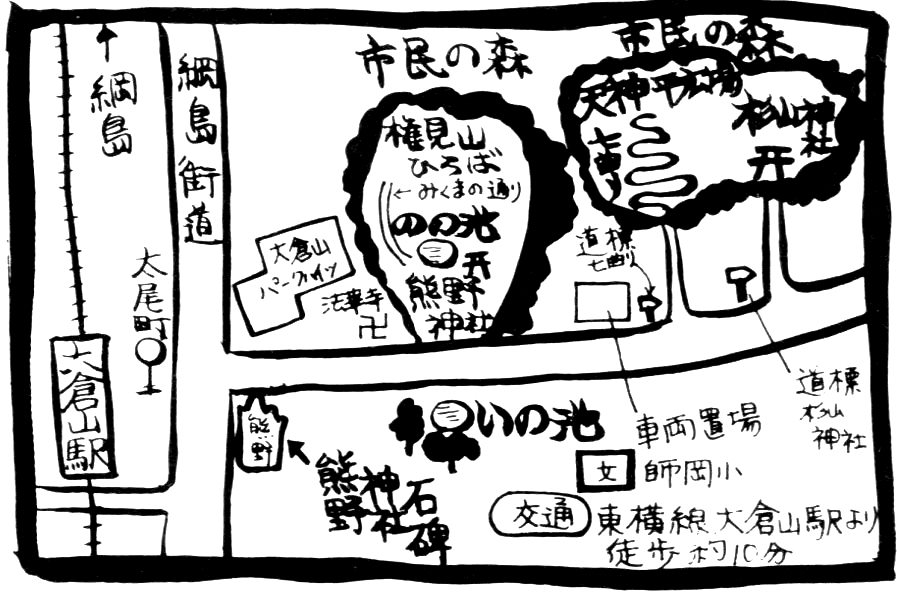 綱島
綱島街道
太尾町
大倉山駅
市民の森
権見山
ひろば
←みくまの通り
のの池
熊野
神社
大倉山
パークハイツ
法華寺
卍
市民の森
天神平広場
七曲り
杉山神社
道標
七曲り
道標
杉山
神社
車両置場
いの池
文
師岡小
熊野
熊野
神社
石碑
交通
東横線大倉山駅より
徒歩約10分